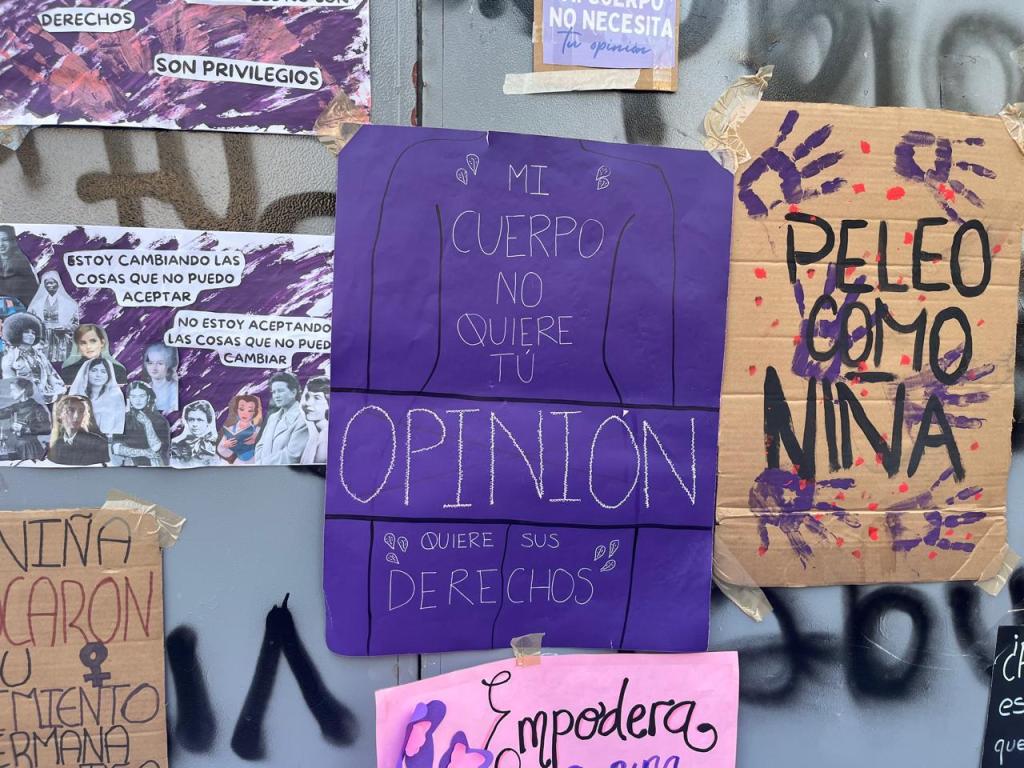 DERECHOS
SON PRIVILEGIOS
CUERPO
NO NECESITA
Tu opinión
ESTOY CAMBIANDO LAS
COSAS QUE NO PUEDO
ACEPTAR
NO ESTOY ACEPTANDO
LAS COSAS QUE NO PUED
CAMBIAR
MI
CUERPO
NO
QUIERE
TÚ
OPINIÓN
QUIERE SUS
DERECHOS
PELEO
COMO
NIÑA
NIÑA
OCARON
U
MIENTO
ERMANA
Empodera
es
que